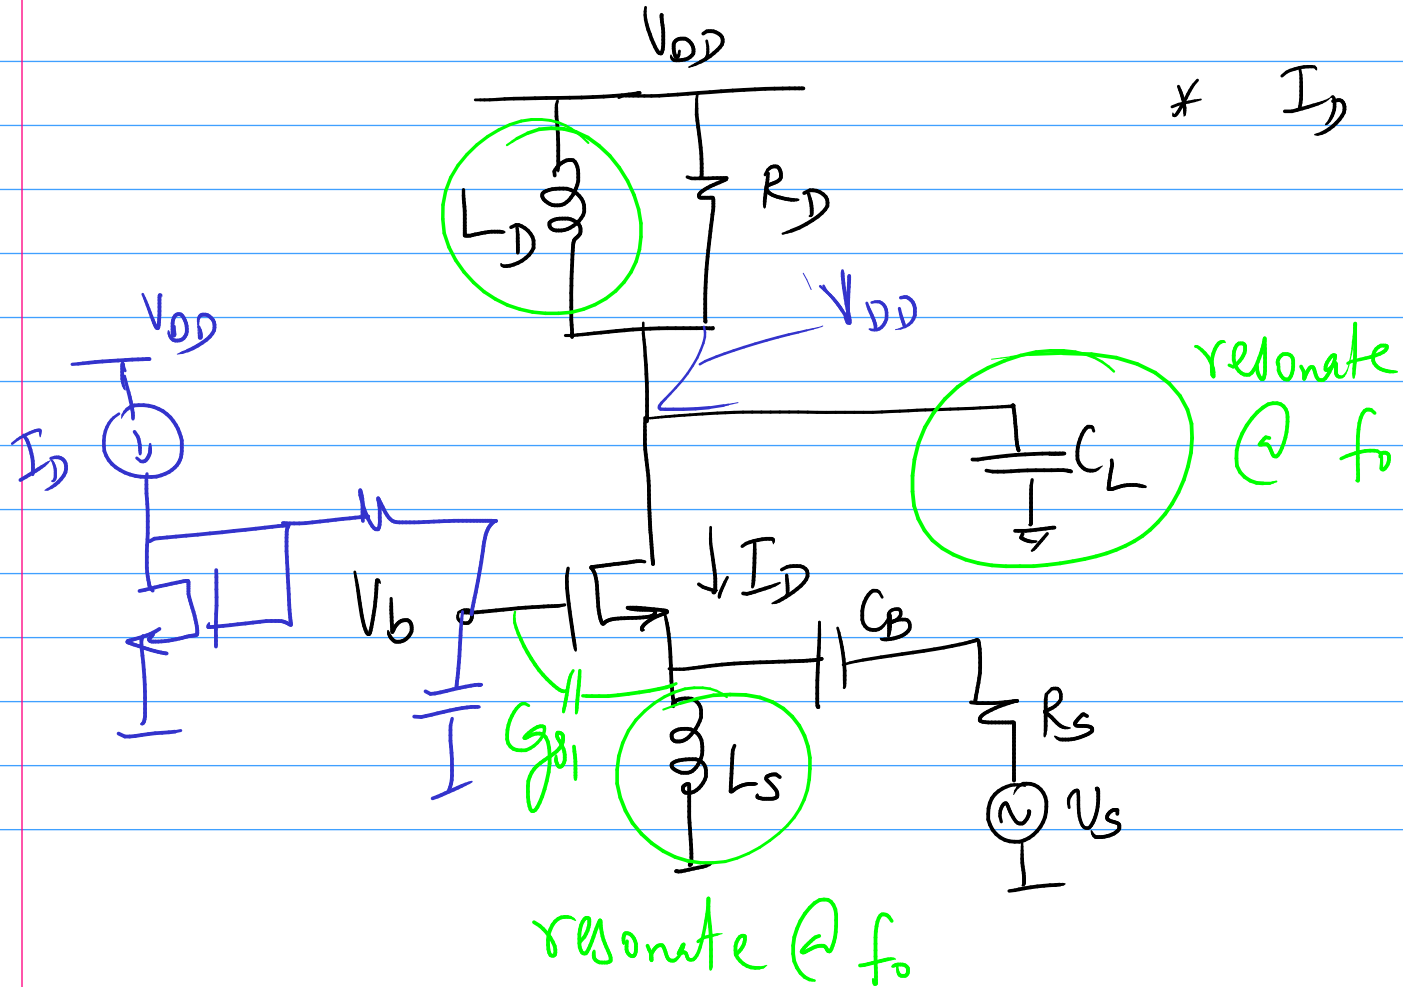 V_DD
* I_D
L_D
R_D
V_DD
V_DD
resonate
@ f_0
I_D
C_L
V_b
I_D
C_B
C_gs1
L_S
R_S
V_S
resonate @ f_0